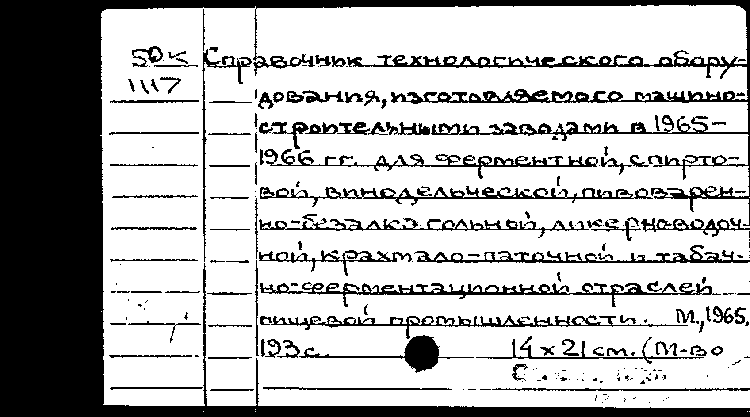 50к Справочник технологического обору-
1117
дования, изготовляемого машино-
строительными заводами в 1965-
1966 гг. для ферментной, спирто-
вой, винодельческой, пивоварен-
но-безалкогольной, ликерноводоч-
ной, крахмало-паточной и табач-
но-ферментационной отраслей
пищевой промышленности. М., 1965.
193 с. 14 x 21 см. (М-во